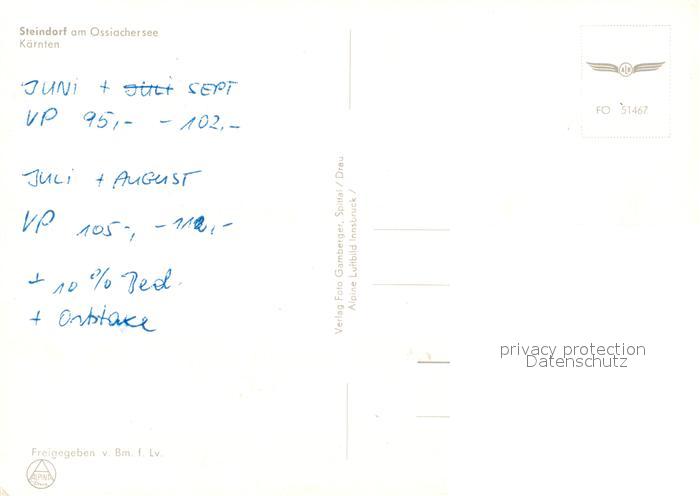 Steindorf am Ossiachersee
Kärnten
JUNI + Juli SEPT
VP 95,- - 102,-
JULI + AUGUST
VP 105,- - 112,-
+ 10 % Bed.
+ Ortstaxe
Freigegeben v. Bm. f. Lv.
ALPINE
Verlag Foto Gamberger, Spittal / Drau
Alpine Luftbild Innsbruck /
FO 51467
privacy protection
Datenschutz